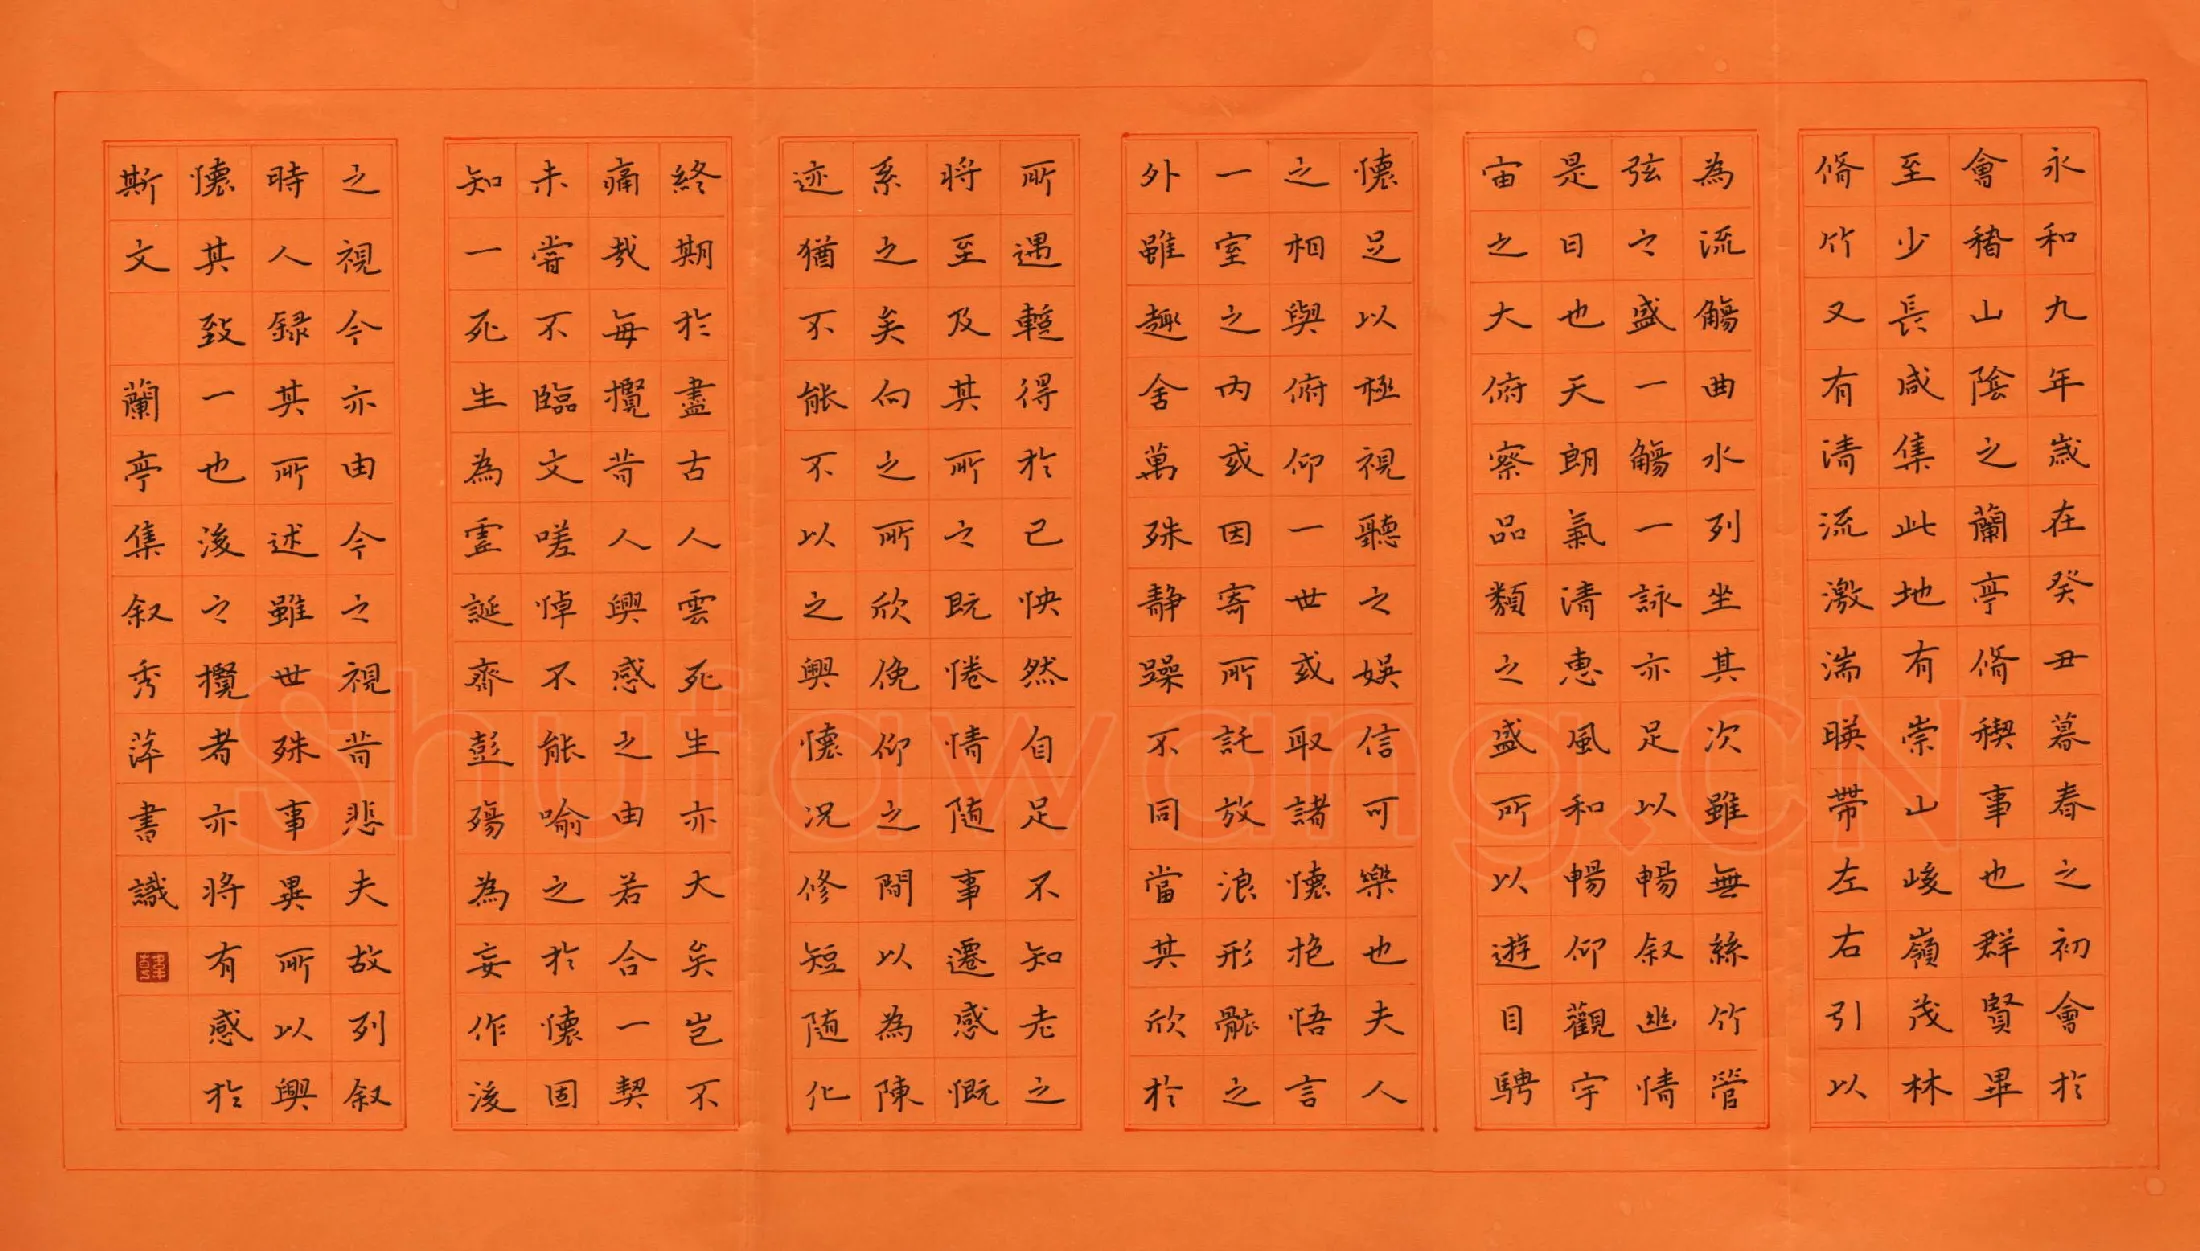 永和九年歲在癸丑暮春之初會於
會稽山陰之蘭亭脩稧事也群賢畢
至少長咸集此地有崇山峻嶺茂林
脩竹又有清流激湍暎帶左右引以
為流觴曲水列坐其次雖無絲竹管
弦之盛一觴一詠亦足以暢叙幽情
是日也天朗氣清惠風和暢仰觀宇
宙之大俯察品類之盛所以遊目騁
懷足以極視聽之娛信可樂也夫人
之相與俯仰一世或取諸懷抱悟言
一室之內或因寄所託放浪形骸之
外雖趣舍萬殊静躁不同當其欣於
所遇暫得於己怏然自足不知老之
將至及其所之既惓情随事遷感慨
系之矣向之所欣俛仰之間以為陳
迹猶不能不以之興懷況修短随化
終期於盡古人雲死生亦大矣豈不
痛哉每攬昔人興感之由若合一契
未嘗不臨文嗟悼不能喻之於懷固
知一死生為虛誕齊彭殤為妄作後
之視今亦由今之視昔悲夫故列叙
時人録其所述雖世殊事異所以興
懷其致一也後之攬者亦將有感於
斯文 蘭亭集叙秀萍書識
Shufawang.CN